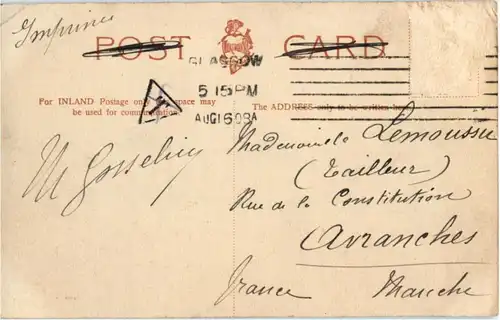 Imprimé
POST CARD
GLASGOW
5 15 PM
AUG 16 09
T
For INLAND Postage only this space may
be used for communication.
The ADDRESS only to be written here
M Gosselin
Mademoiselle Lemoussu
(Tailleur)
Rue de la Constitution
Avranches
France Manche